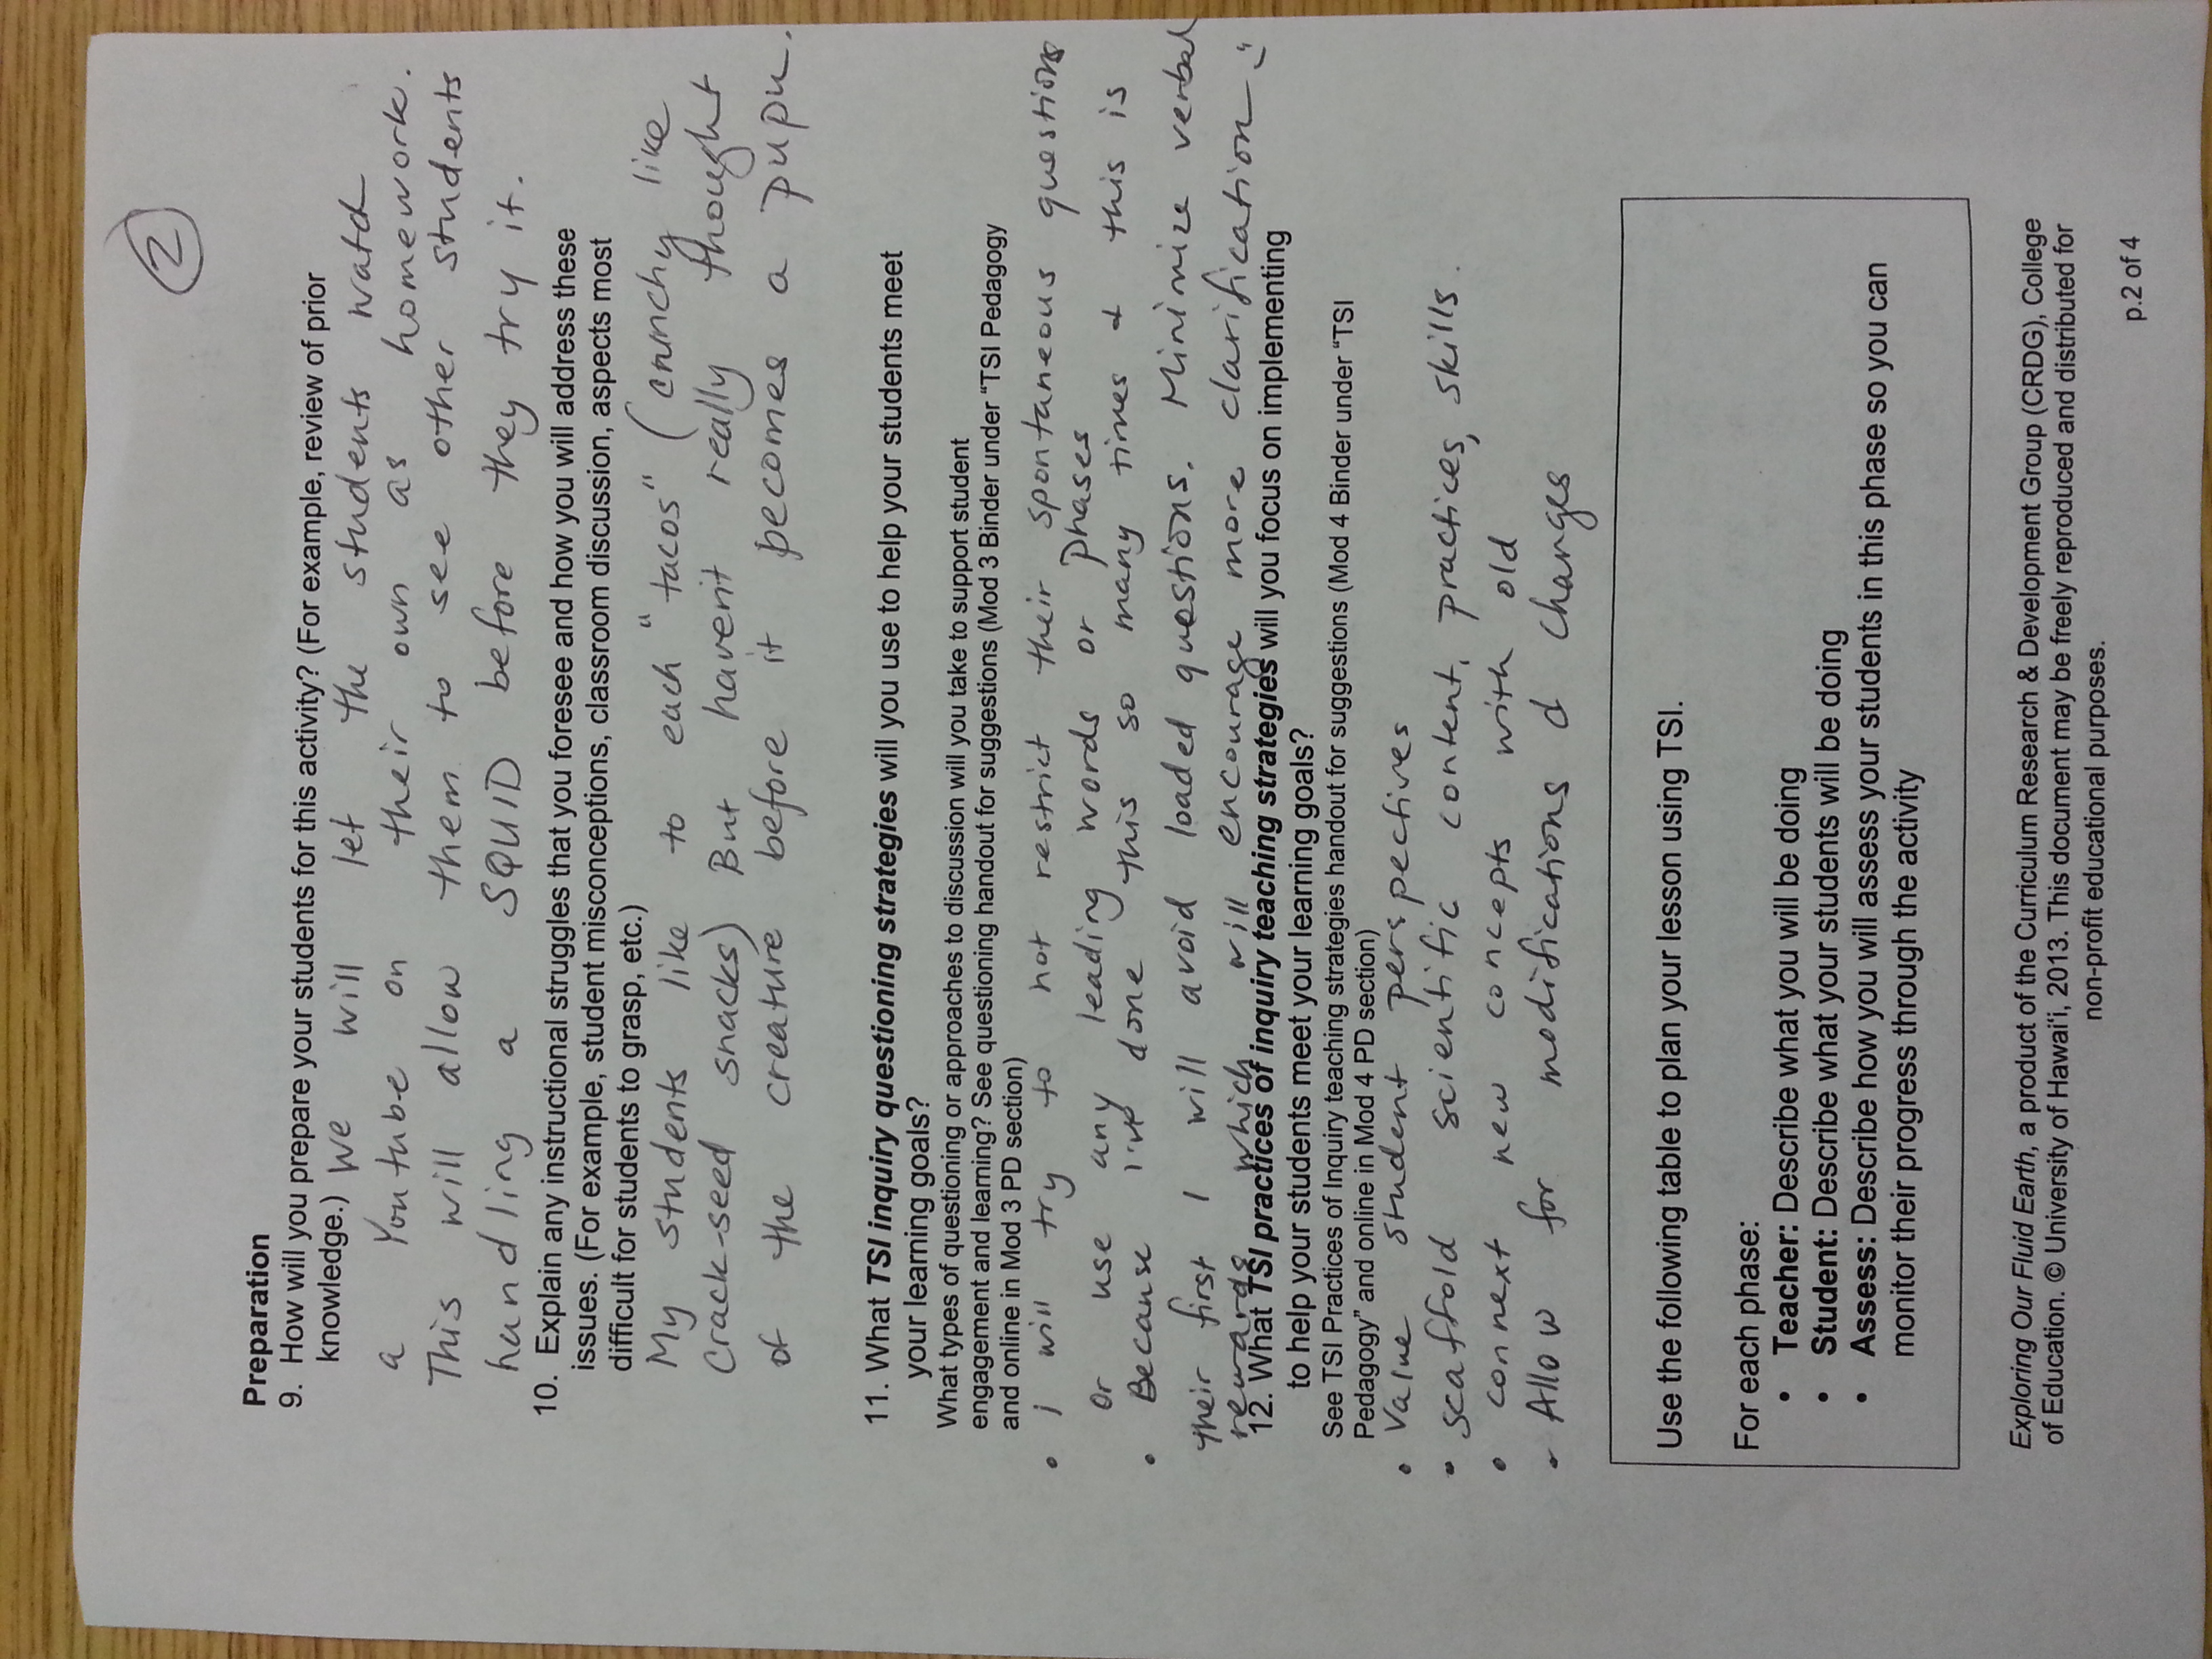 2
Preparation
9. How will you prepare your students for this activity? (For example, review of prior
knowledge.) We will let the students watch
a Youtube on their own as homework.
This will allow them to see other students
handling a SQUID before they try it.
10. Explain any instructional struggles that you foresee and how you will address these
issues. (For example, student misconceptions, classroom discussion, aspects most
difficult for students to grasp, etc.)
My students like to each "tacos" (crunchy like
Crack-seed snacks) But havenit really thought
of the creature before it becomes a pupu.
11. What TSI inquiry questioning strategies will you use to help your students meet
your learning goals?
What types of questioning or approaches to discussion will you take to support student
engagement and learning? See questioning handout for suggestions (Mod 3 Binder under "TSI Pedagogy
and online in Mod 3 PD section)
• I will try to not restrict their spontaneous questions
or use any leading words or phases
• Because done this so many times & this is
their first I will avoid loaded questions. Minimize verbal
rewards which will encourage more clarification
12. What TSI practices of inquiry teaching strategies will you focus on implementing
to help your students meet your learning goals?
See TSI Practices of Inquiry teaching strategies handout for suggestions (Mod 4 Binder under "TSI
Pedagogy" and online in Mod 4 PD section)
• Value student perspectives
• scaffold scientific content, practices, skills.
• connext new concepts with old
• Allow for modifications d changes
Use the following table to plan your lesson using TSI.
For each phase:
• Teacher: Describe what you will be doing
• Student: Describe what your students will be doing
• Assess: Describe how you will assess your students in this phase so you can
monitor their progress through the activity
Exploring Our Fluid Earth, a product of the Curriculum Research & Development Group (CRDG), College
of Education. © University of Hawai'i, 2013. This document may be freely reproduced and distributed for
non-profit educational purposes.
p.2 of 4